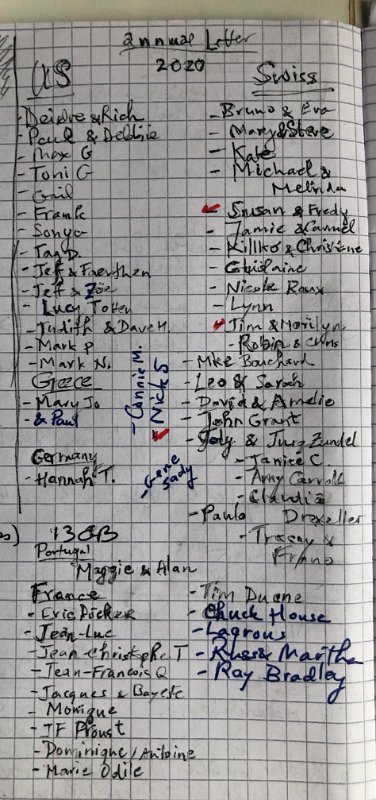 annual Letter
2020
US
- Deirdre & Rich
- Paul & Debbie
- Max G
- Toni G
- Gail
- Frank
- Sonya
- Tan D.
- Jeff &
- Jeff & Zöe
- Lucy Totten
- Judith & Dave H.
- Mark P
- Mark N.
Greece
- Mary Jo
- & Paul
Germany
- Hannah T.
- Connie M.
- Nick S
- Gene
Sady
Swiss
- Bruno & Eva
- Mary & Steve
- Kate
- Michael &
Melinda
- Susan & Fredy
- Jamie & Carmel
- Killko & Christine
- Ghislaine
- Nicole Roux
- Lynn
- Tim & Marilyn
- Robin & Chris
- Mke Bouchard
- Leo & Sarah
- David & Amelie
- John Grant
- Jody & Jurg Zundel
- Janice C.
- Amy Carroll
- Claudia
- Paulo Drexeller
- Tracey &
Franco
13 GB
Portugal
Maggie & Alan
France
- Eric Döcker
- Jean-Luc
- Jean-Christophe T
- Jean-Francois Q
- Jacques &
- Monique
- JF Proust
- Dominique / Antoine
- Marie Odile
- Tim Duane
- Chuck House
- Lagrous
- Russ & Martha
- Ray Bradley